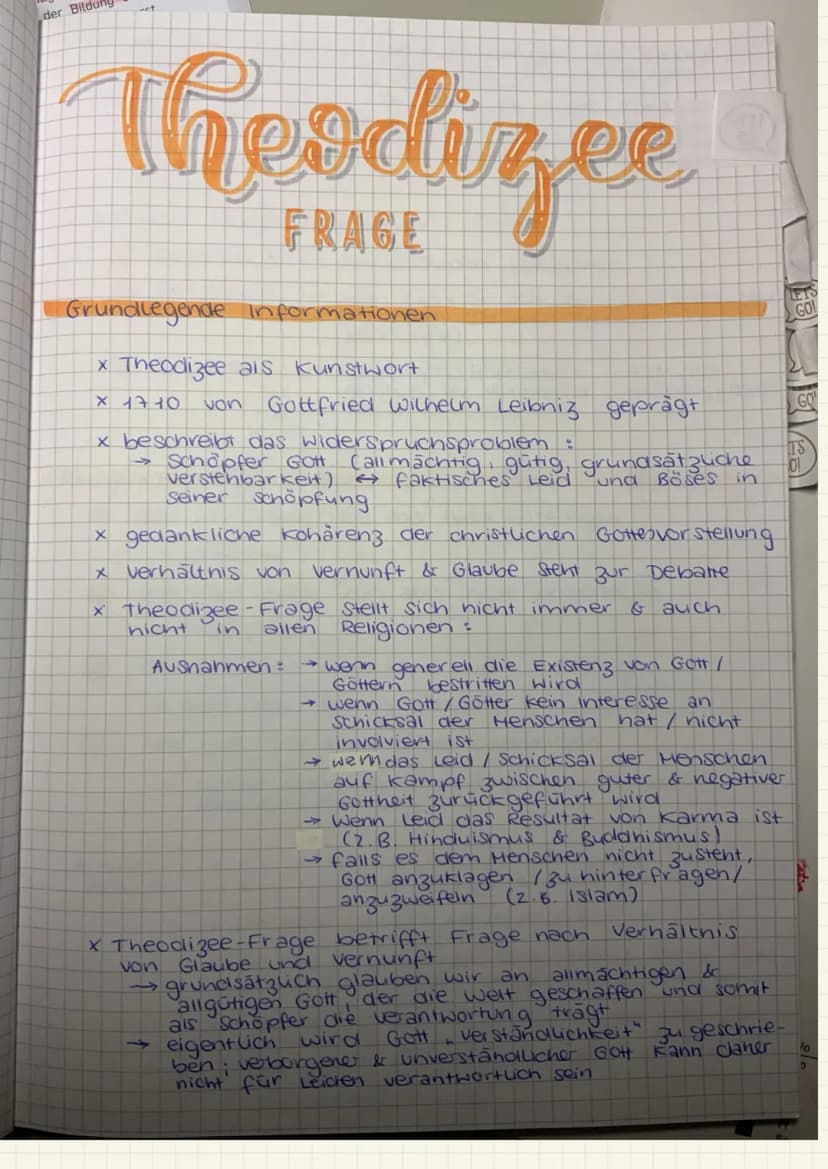 der Bildung
Theodizee
FRAGE
Grundlegende Informationen
LET'S
GO!
x Theodizee als Kunstwort
x 1710 von Gottfried Wilhelm Leibniz geprägt
GO!
x beschreibt das Widerspruchsproblem :
→ Schöpfer Gott (allmächtig, gütig, grundsätzliche
verstehbarkeit) ↔ faktisches Leid und Böses in
seiner Schöpfung
x gedankliche Kohärenz der christlichen Gottesvorstellung
x Verhältnis von Vernunft & Glaube steht zur Debatte
x Theodizee-Frage stellt sich nicht immer & auch
nicht in allen Religionen :
Ausnahmen : → wenn generell die Existenz von Gott /
Göttern bestritten wird
→ wenn Gott / Götter kein Interesse an
Schicksal der Menschen hat / nicht
involviert ist
→ wenn das Leid / Schicksal der Menschen
auf Kampf zwischen guter & negativer
Gottheit zurückgeführt wird
→ Wenn Leid das Resultat von Karma ist
(z.B. Hinduismus & Buddhismus)
→ falls es dem Menschen nicht zusteht,
Gott anzuklagen / zu hinterfragen /
anzuzweifeln (z.B. Islam)
x Theodizee-Frage betrifft Frage nach Verhältnis
von Glaube und Vernunft
→ grundsätzlich glauben wir an allmächtigen &
allgütigen Gott, der die Welt geschaffen und somit
als Schöpfer die Verantwortung trägt
→ eigentlich wird Gott „Verständlichkeit" zugeschrie-
ben ; verborgener & unverständlicher Gott kann daher
nicht für Leiden verantwortlich sein